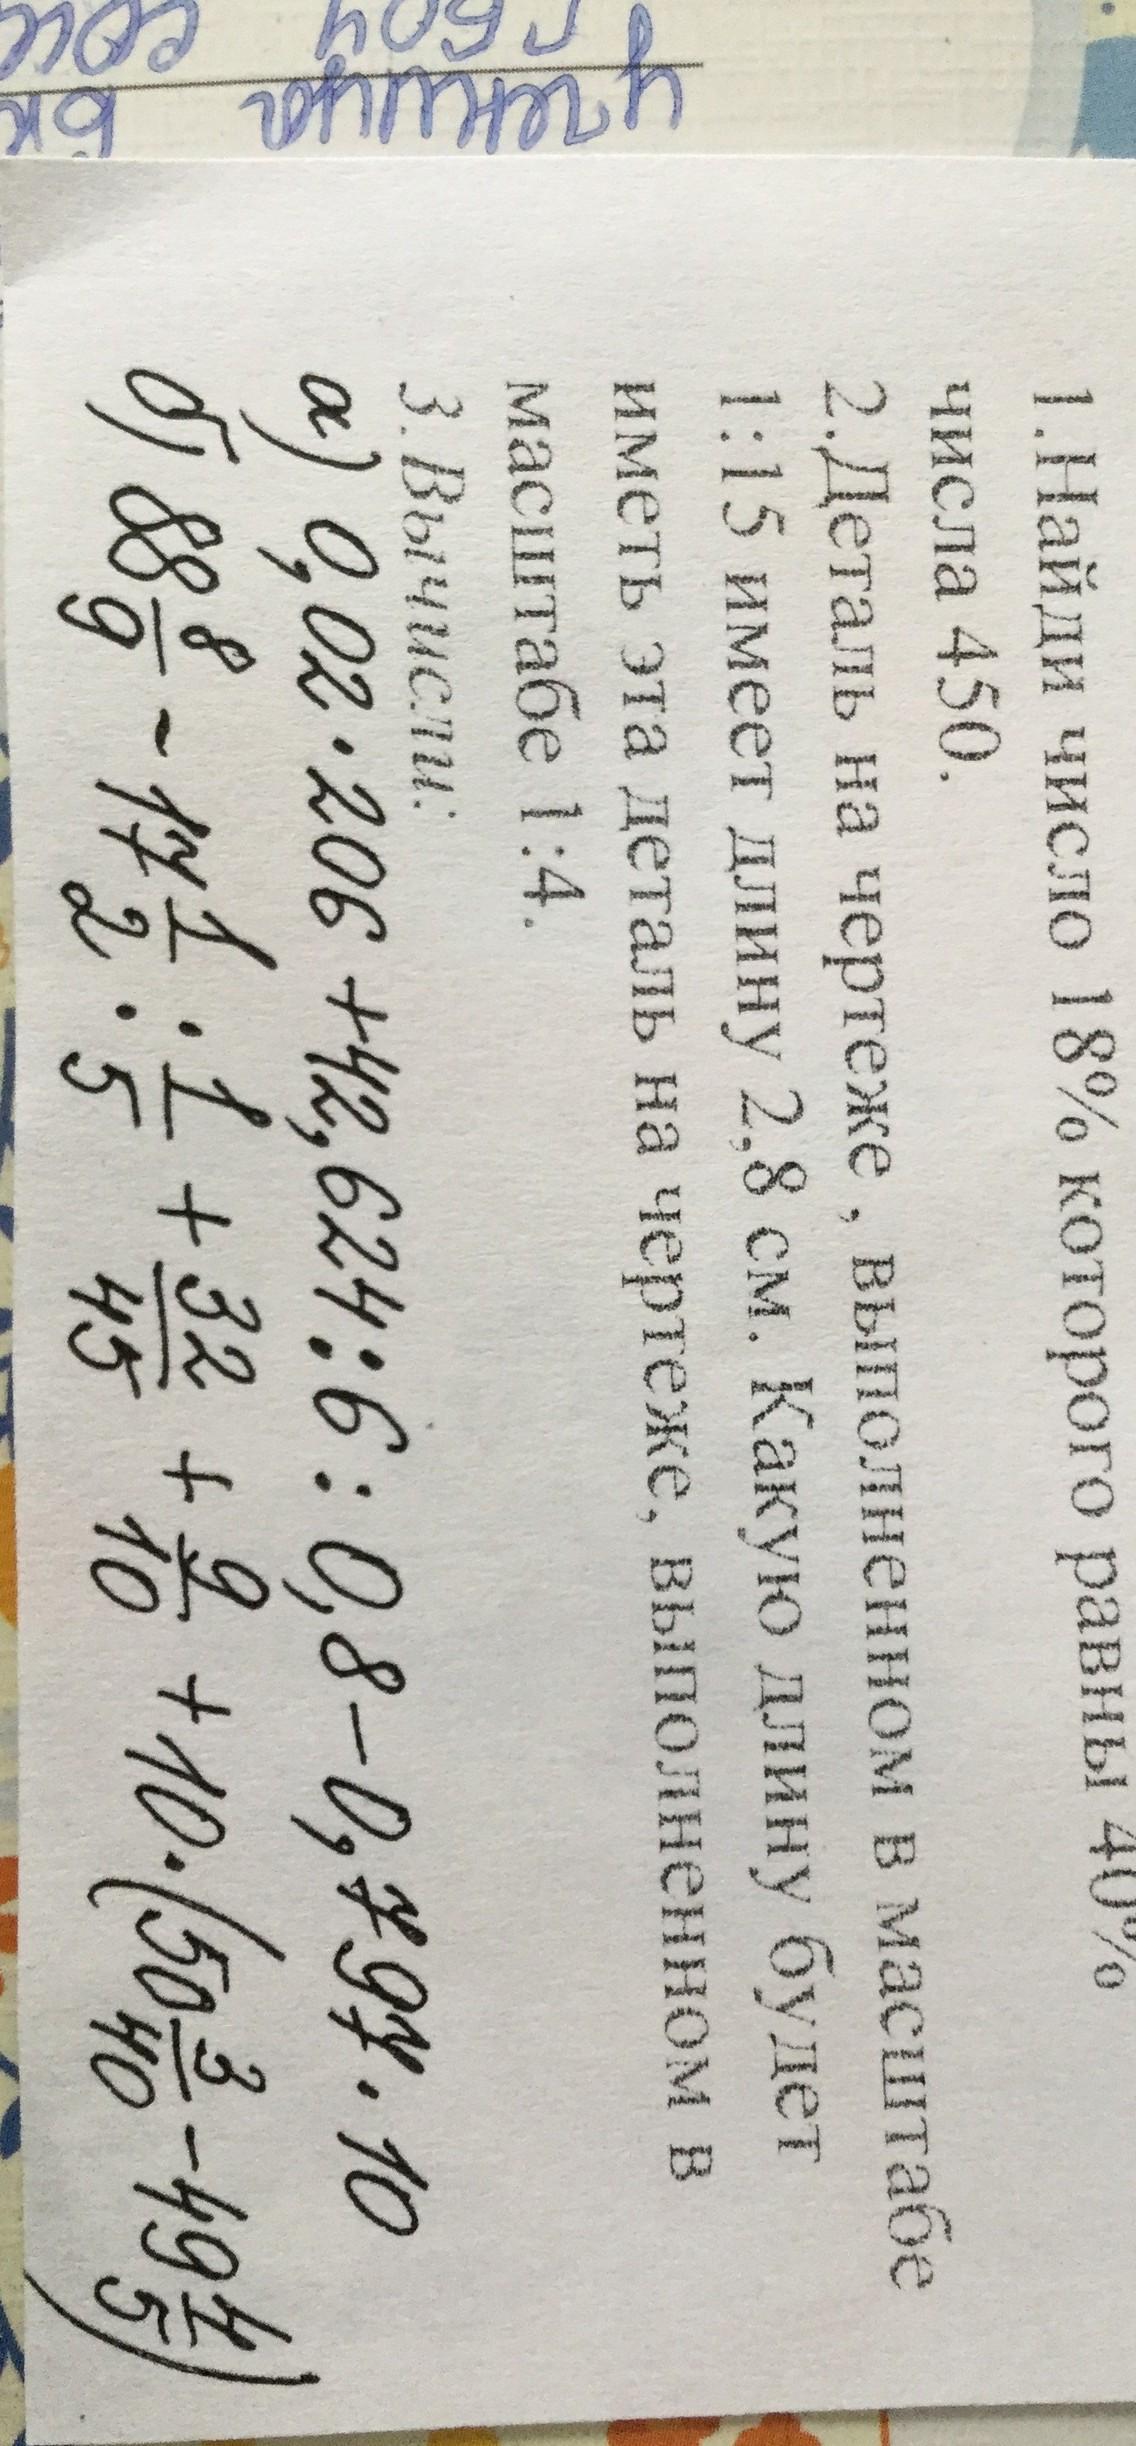 ученица бк
1.Найди число 18% которого равны 40%
числа 450.
2.Деталь на чертеже , выполненном в масштабе
1:15 имеет длину 2,8 см. Какую длину будет
иметь эта деталь на чертеже, выполненном в
масштабе 1:4.
3.Вычисли:
а) 0,02·206+42,624:6:0,8-0,797·10
б) 88 8/9 - 17 1/2 · 1/5 + 32/45 + 9/10 + 10·(50 3/40 - 49 4/5)